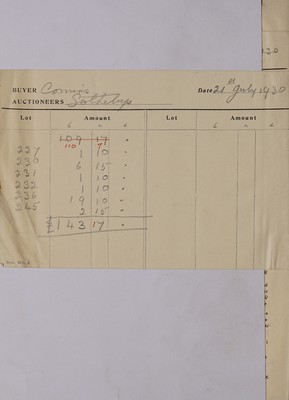 130
BUYER Comins Date 21st July 1930
AUCTIONEERS Sothebys
Lot Amount Lot Amount
£ s d £ s d
109 17 "
110 7
227 1 10 "
230 6 15 "
231 1 10 "
232 1 10 "
236 19 10 "
245 2 15 "
£143 17 "